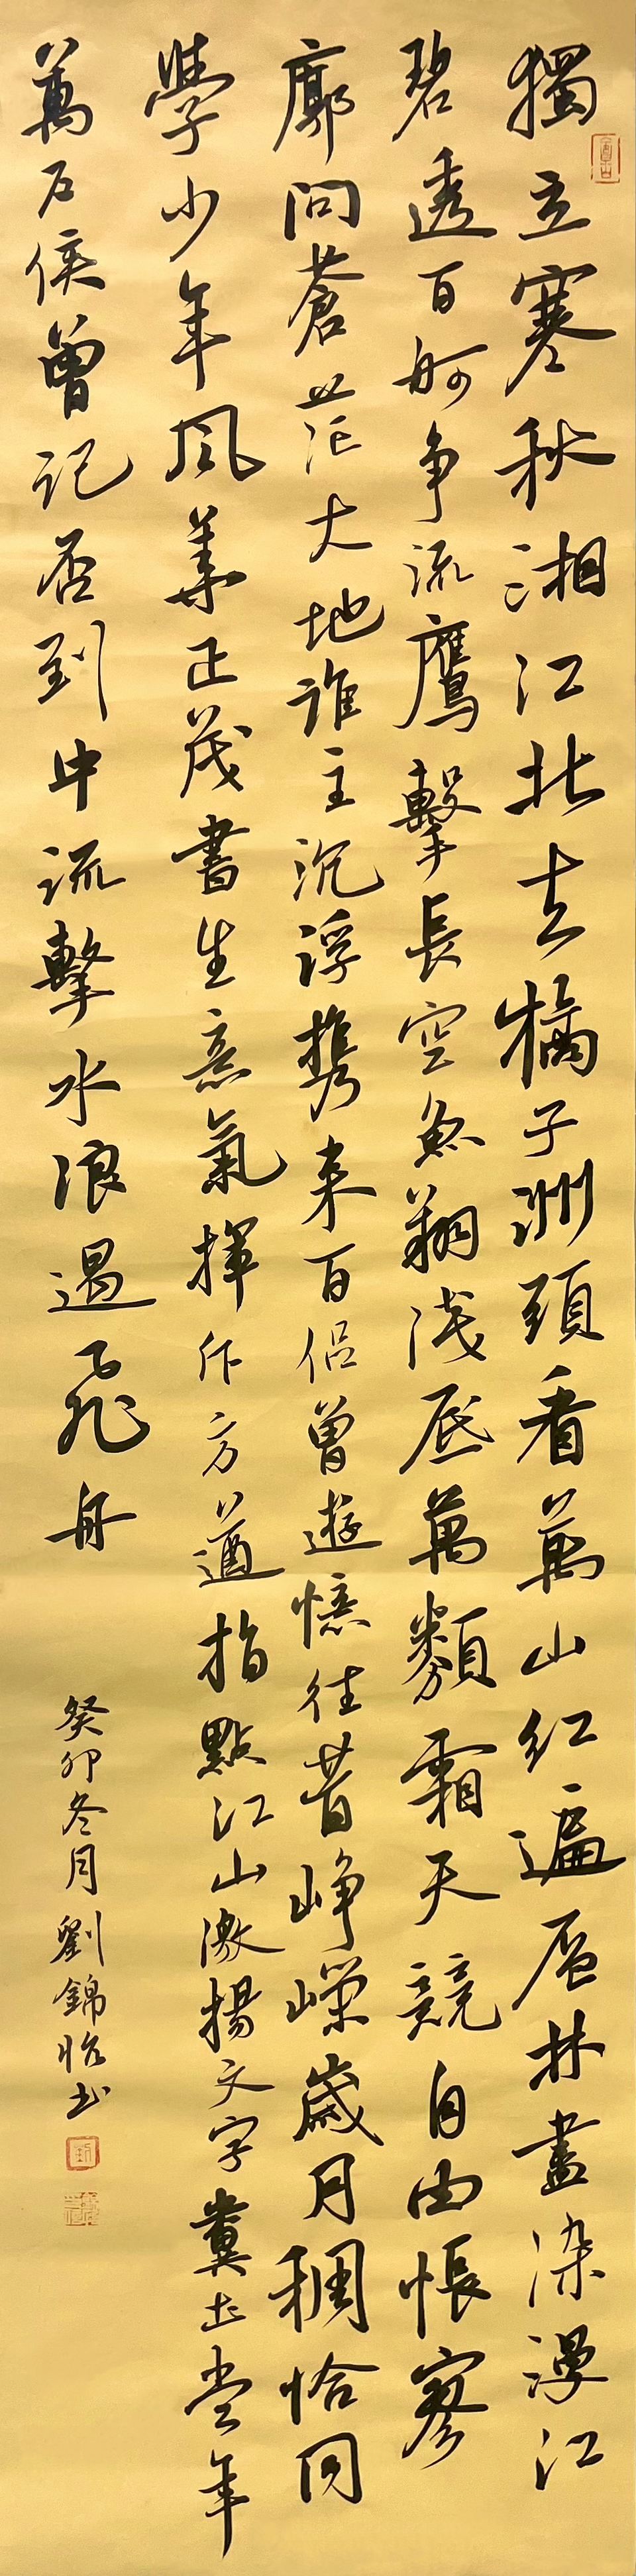 獨立寒秋湘江北去橘子洲頭看萬山紅遍層林盡染漫江
碧透百舸争流鷹擊長空魚翔淺底萬類霜天競自由悵寥
廓問蒼茫大地誰主沉浮携来百侣曾遊憶往昔崢嶸歲月稠恰同
學少年風華正茂書生意氣揮斥方遒指點江山激揚文字糞土當年
萬户侯曾記否到中流擊水浪遏飛舟
癸卯冬月劉錦怡书
劉